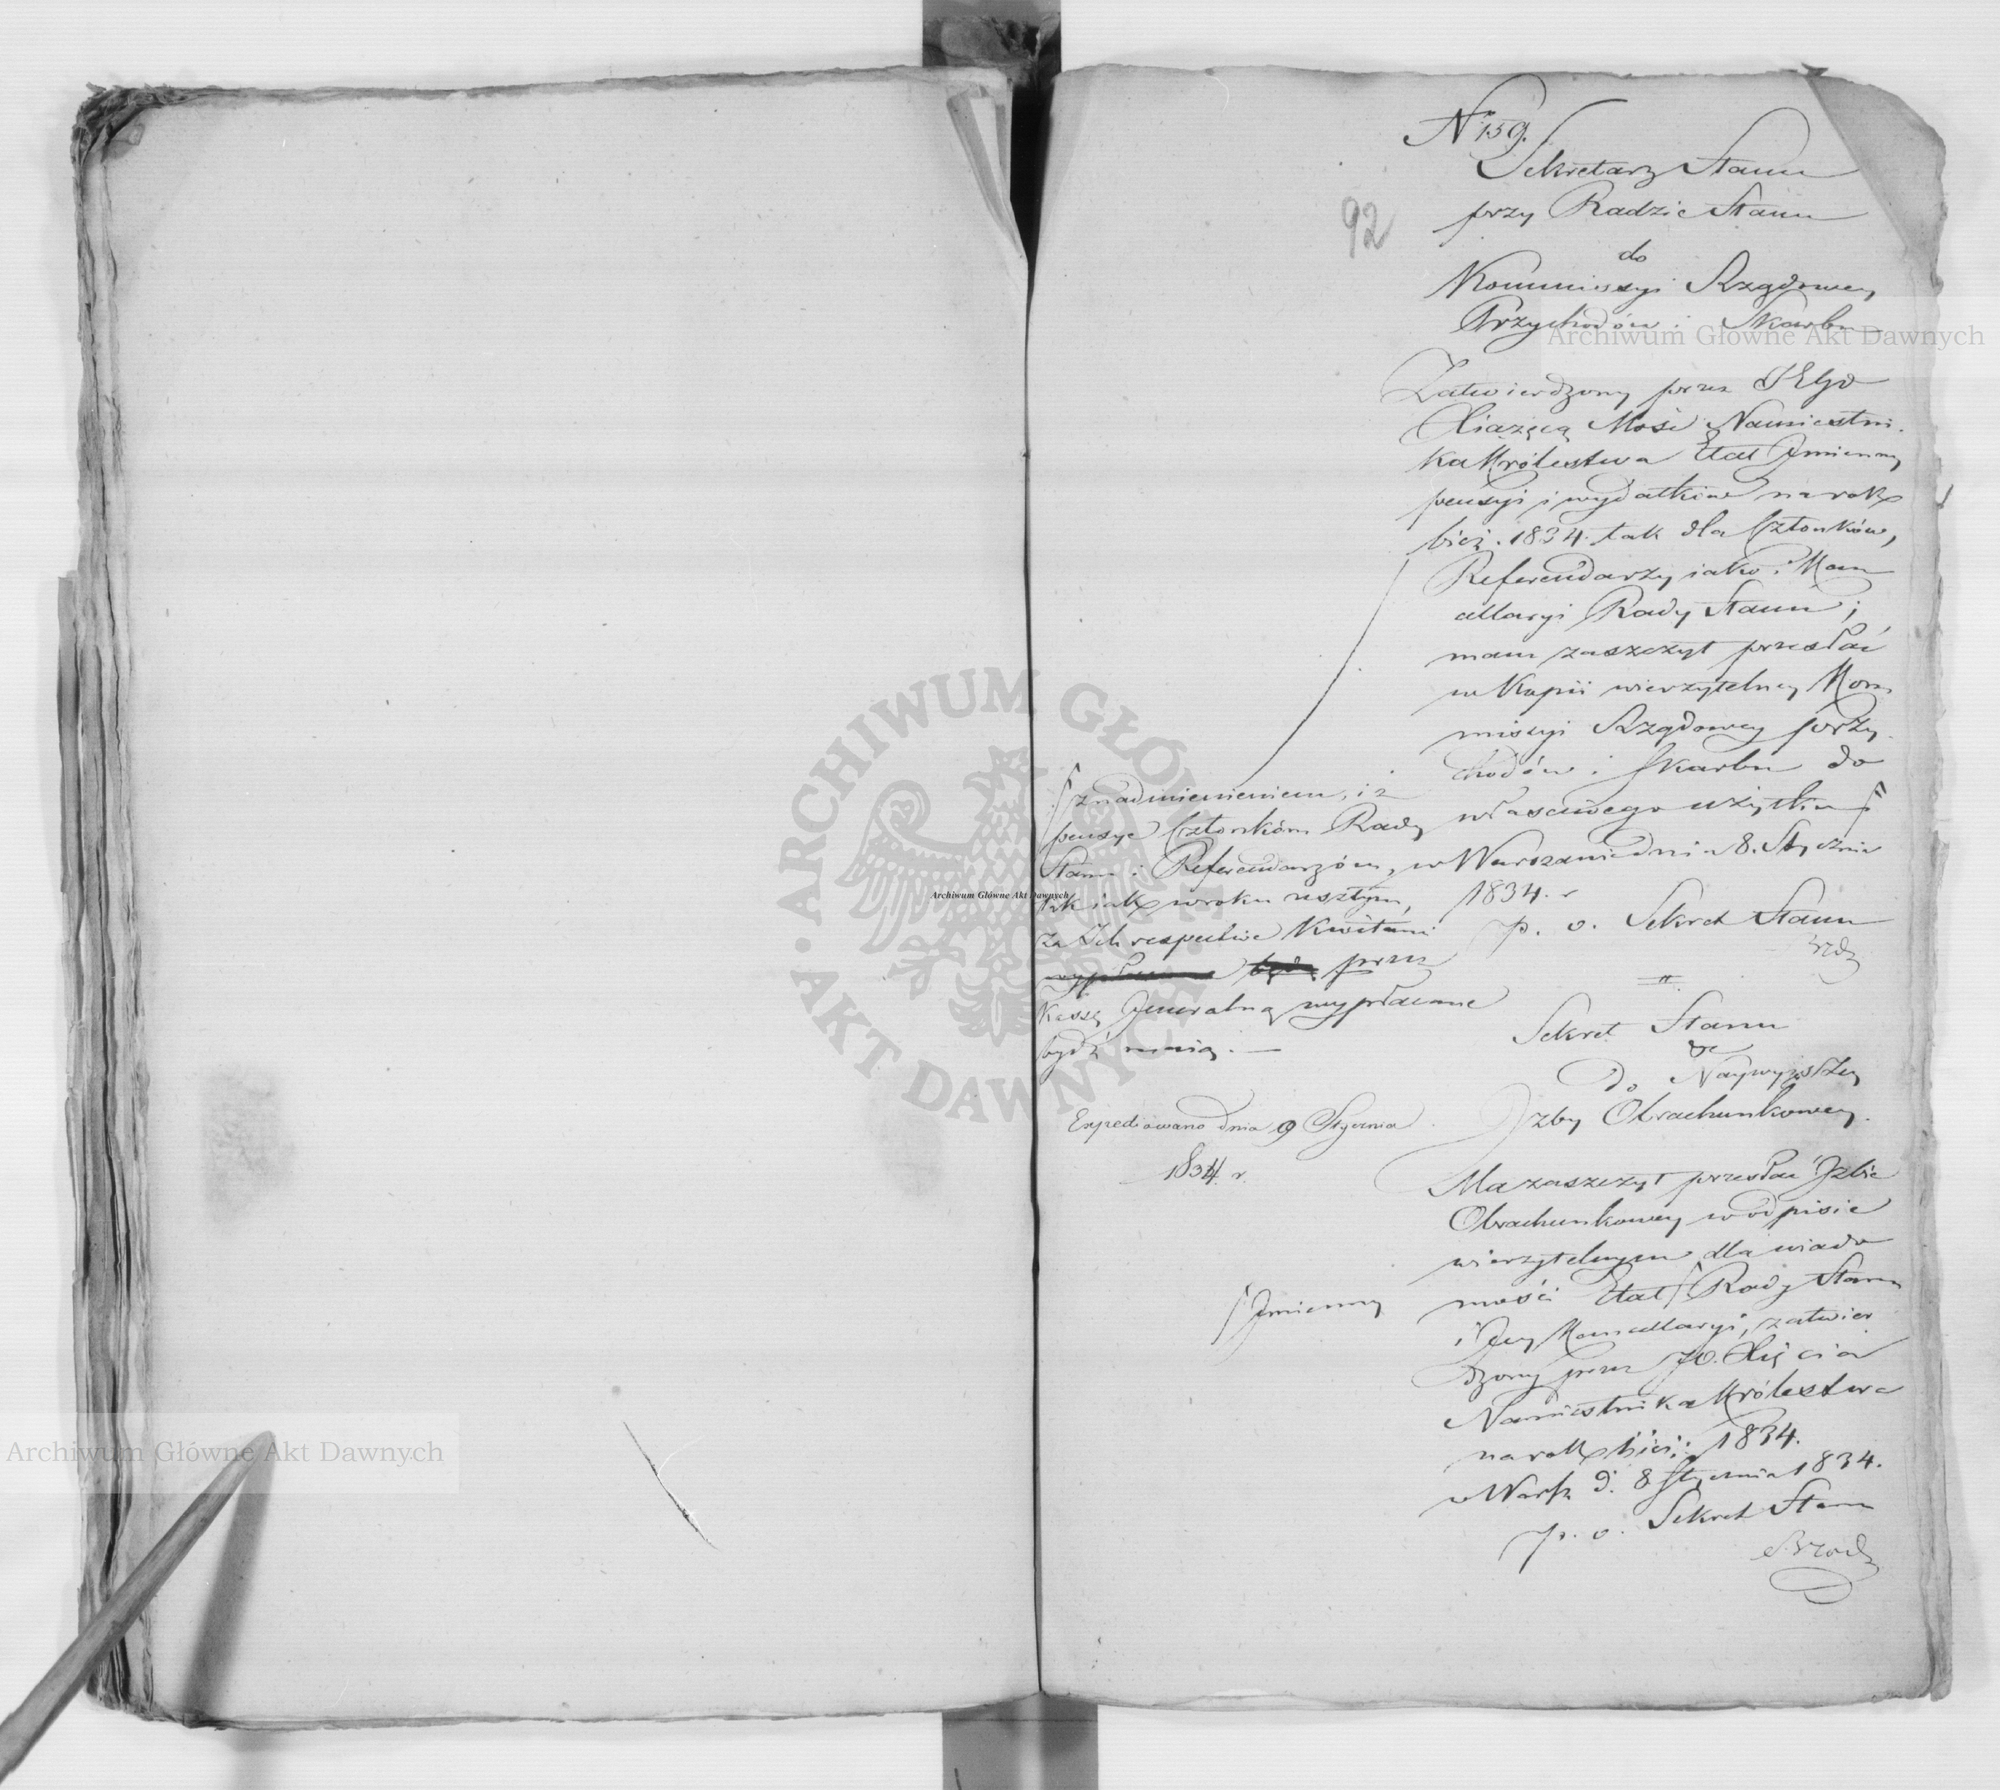 Nr 159.
92
Sekretarz Stanu
przy Radzie Stanu
do
Kommissyi Rządowey
Przychodów i Skarbu
Zatwierdzony przez JEgo
Xiążęcą Mość Namiestni-
ka Królestwa Etat Jmienny
pensyi i wydatków na rok
bież. 1834. tak dla Członków,
Referendarzy iako i Kan
cellaryi Rady Stanu;
mam zaszczyt przesłać
w Kopii wierzytelney Kom
missyi Rządowey przy-
chodów i Skarbu do
właściwego użytku
w Warszawie dnia 8. Stycznia
1834. r
p. o. Sekret Stanu
z nadmienieniem, iż
pensye Członków Rady
Stanu i Referendarzów,
tak iak w roku zeszłym,
za Ich respective Kwitami
wypłacane będą przez
Kassę Jeneralną wypłacane
bydź maią. —
Expediowano dnia 9 Stycznia
1834. r.
Sekret Stanu
do Naywyższey
Izby Obrachunkowey.
Ma zaszczyt przesłać Jzbie
Obrachunkowey w odpisie
wierzytelnym dla wiado
mości Etat Rady Stanu
Jmienny
i Jey Kancellaryi, zatwier
dzony przez JO. Xięcia
Namiestnika Królestwa
na rok bież: 1834.
w Warsz d. 8 Stycznia 1834.
p. o. Sekret Stanu
Archiwum Główne Akt Dawnych
Archiwum Główne Akt Dawnych
Archiwum Główne Akt Dawnych
ARCHIWUM GŁÓWNE AKT DAWNYCH